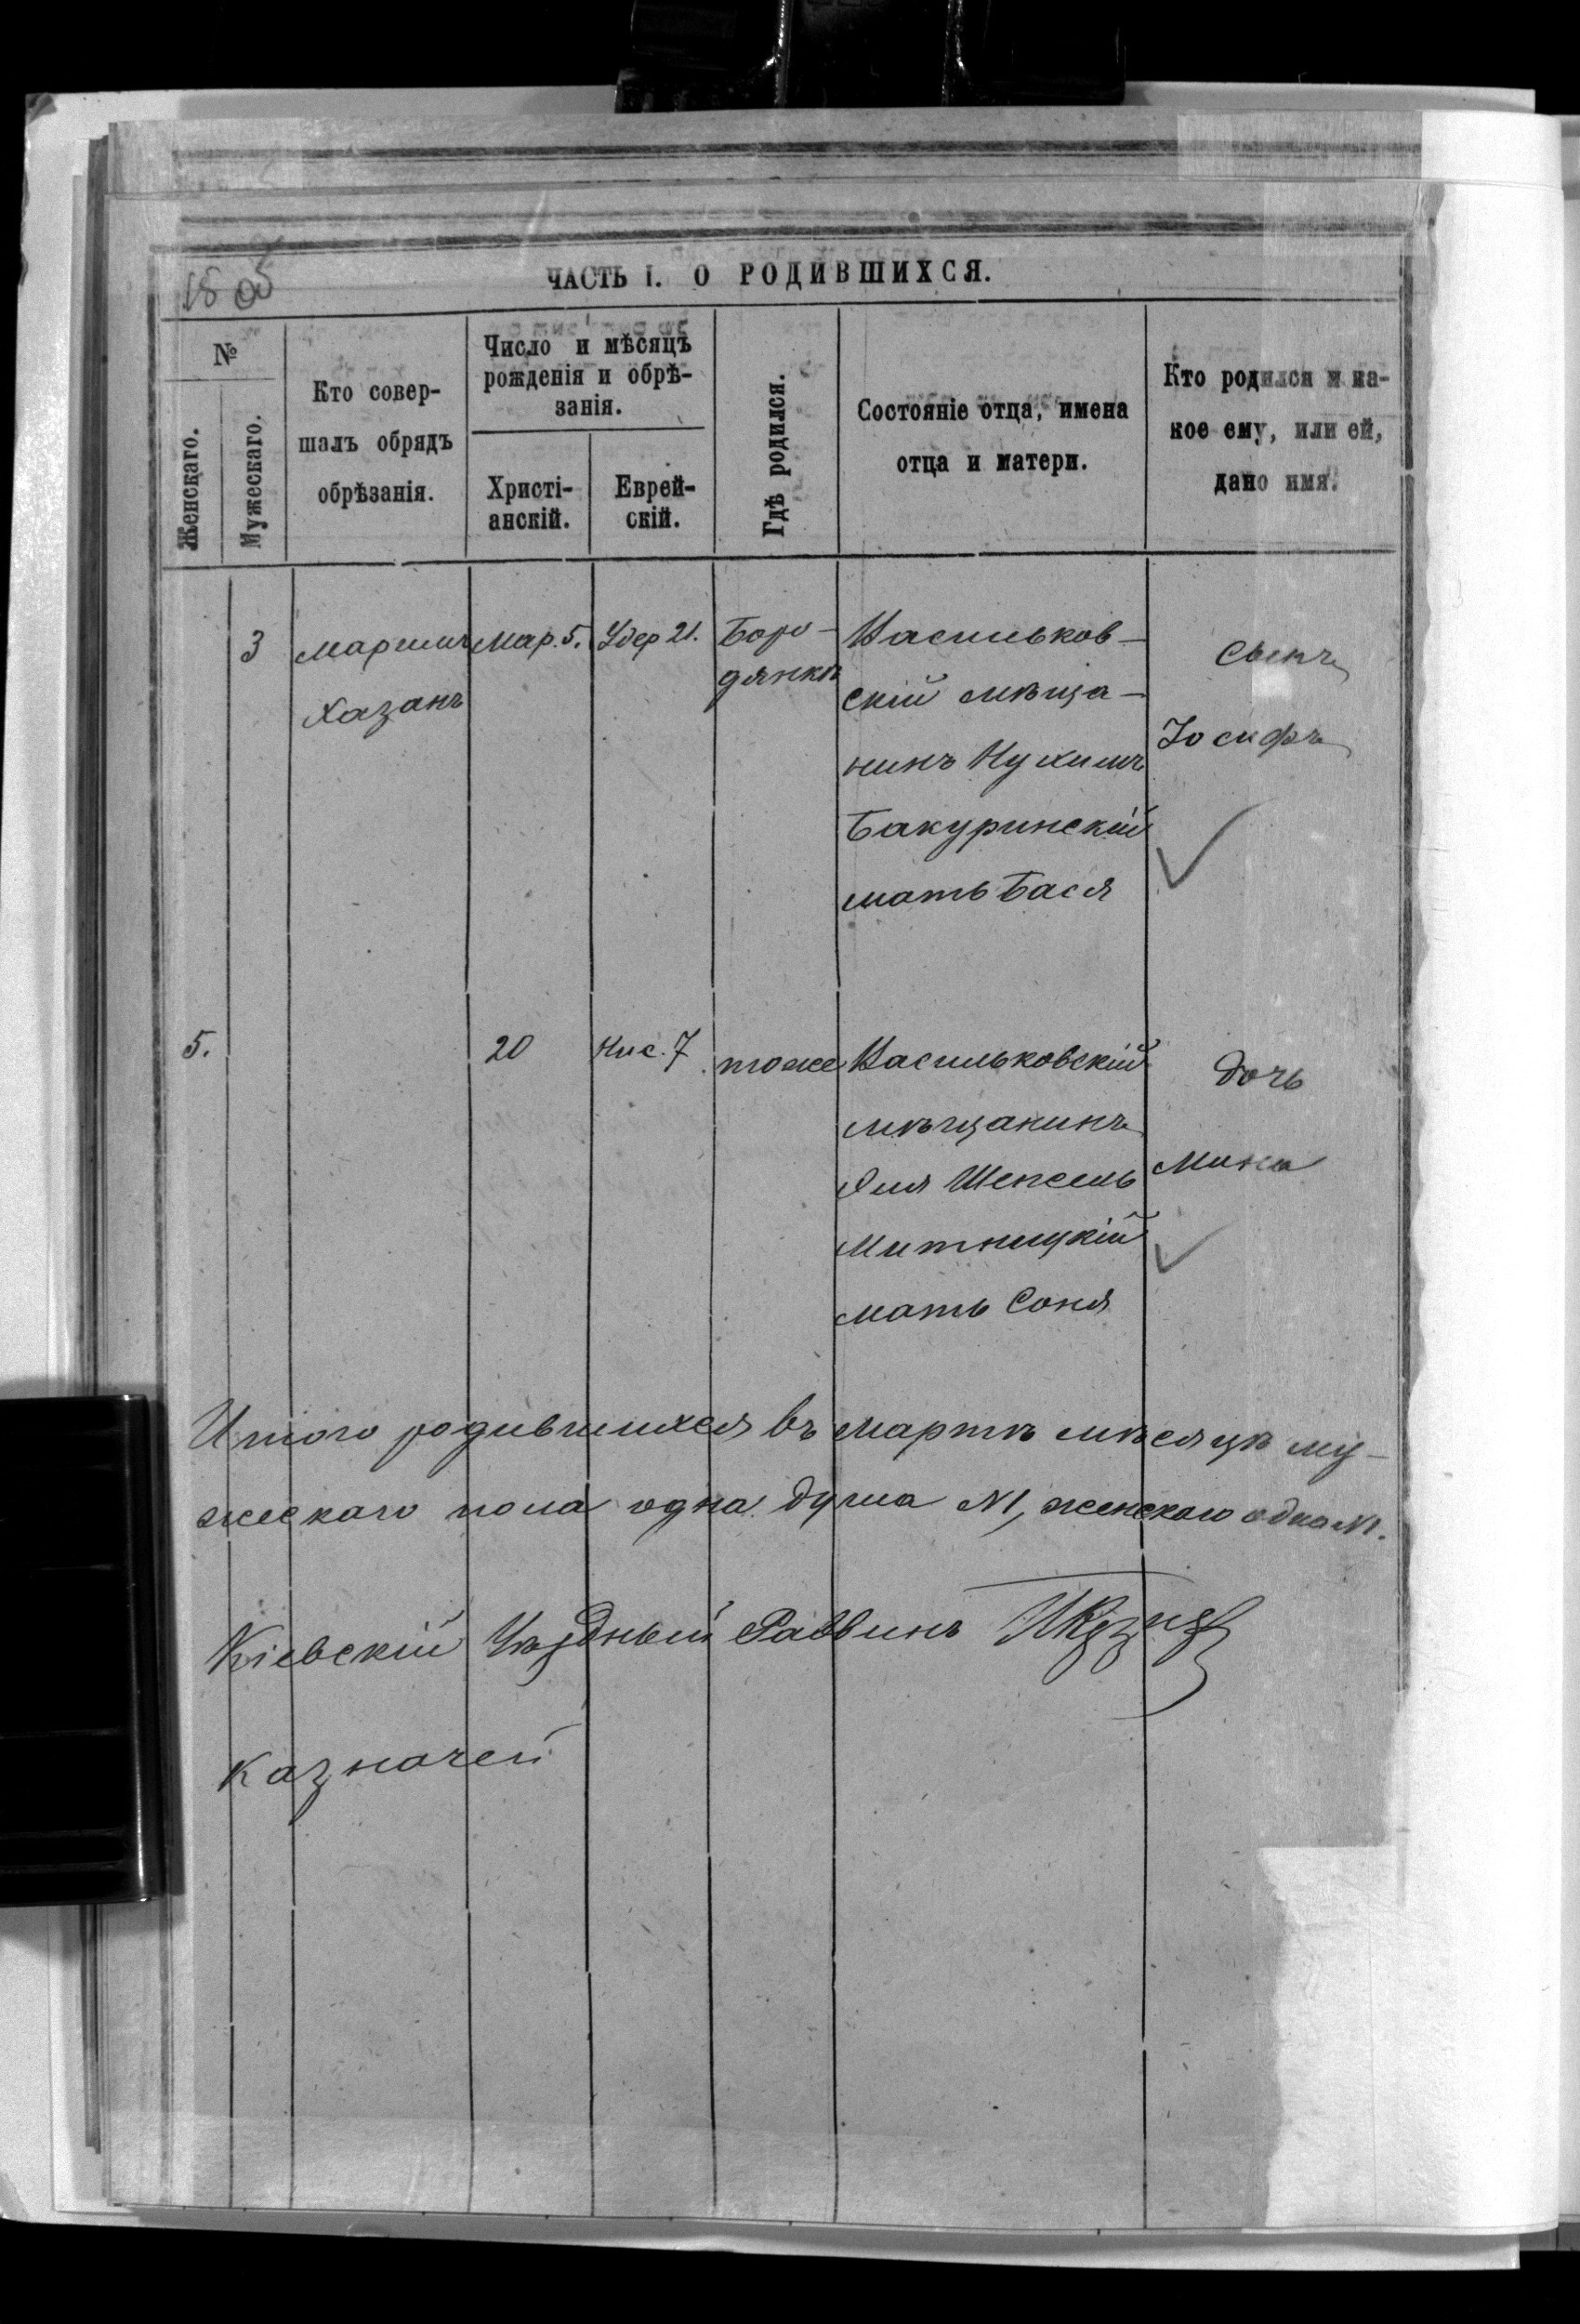 ЧАСТЬ I. О РОДИВШИХСЯ.
№
Женскаго.
Мужескаго.
Кто совер-
шалъ обрядъ
обрѣзанія.
Число и мѣсяцъ
рожденія и обрѣ-
занія.
Христі-
анскій.
Еврей-
скій.
Гдѣ родился.
Состояніе отца, имена
отца и матери.
Кто родился и ка-
кое ему, или ей,
дано имя.
3
Хазанъ
Мар. 5.
Удер 21.
Боро-
дянкѣ
Васильков-
скій мѣща-
нинъ Нухимъ
Бакуринскій
мать Бася
Сынъ
Іосифъ
5.
20
Нис. 7
тоже
Васильковскій
мѣщанинъ
Митницкій
мать Соня
дочь
Итого родившихся въ Мартѣ мѣсяцѣ му-
жескаго пола одна душа №1, женскаго одна №1.
Кіевскій Уѣздный Раввинъ
Казначей